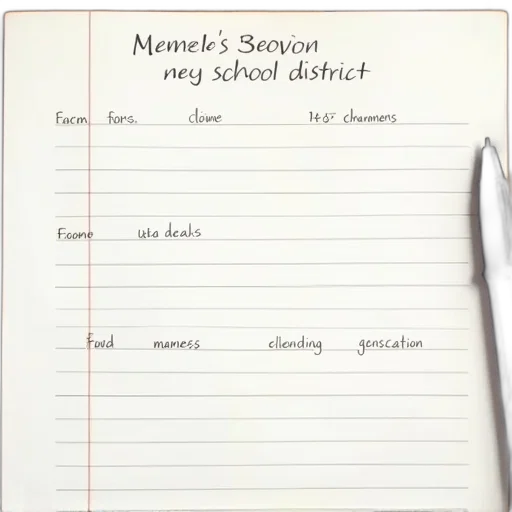 Memele's Beovion
ney school district
Facm fors. cloiwe charamens
Foome uta deals
Foud mamess cllending genscation